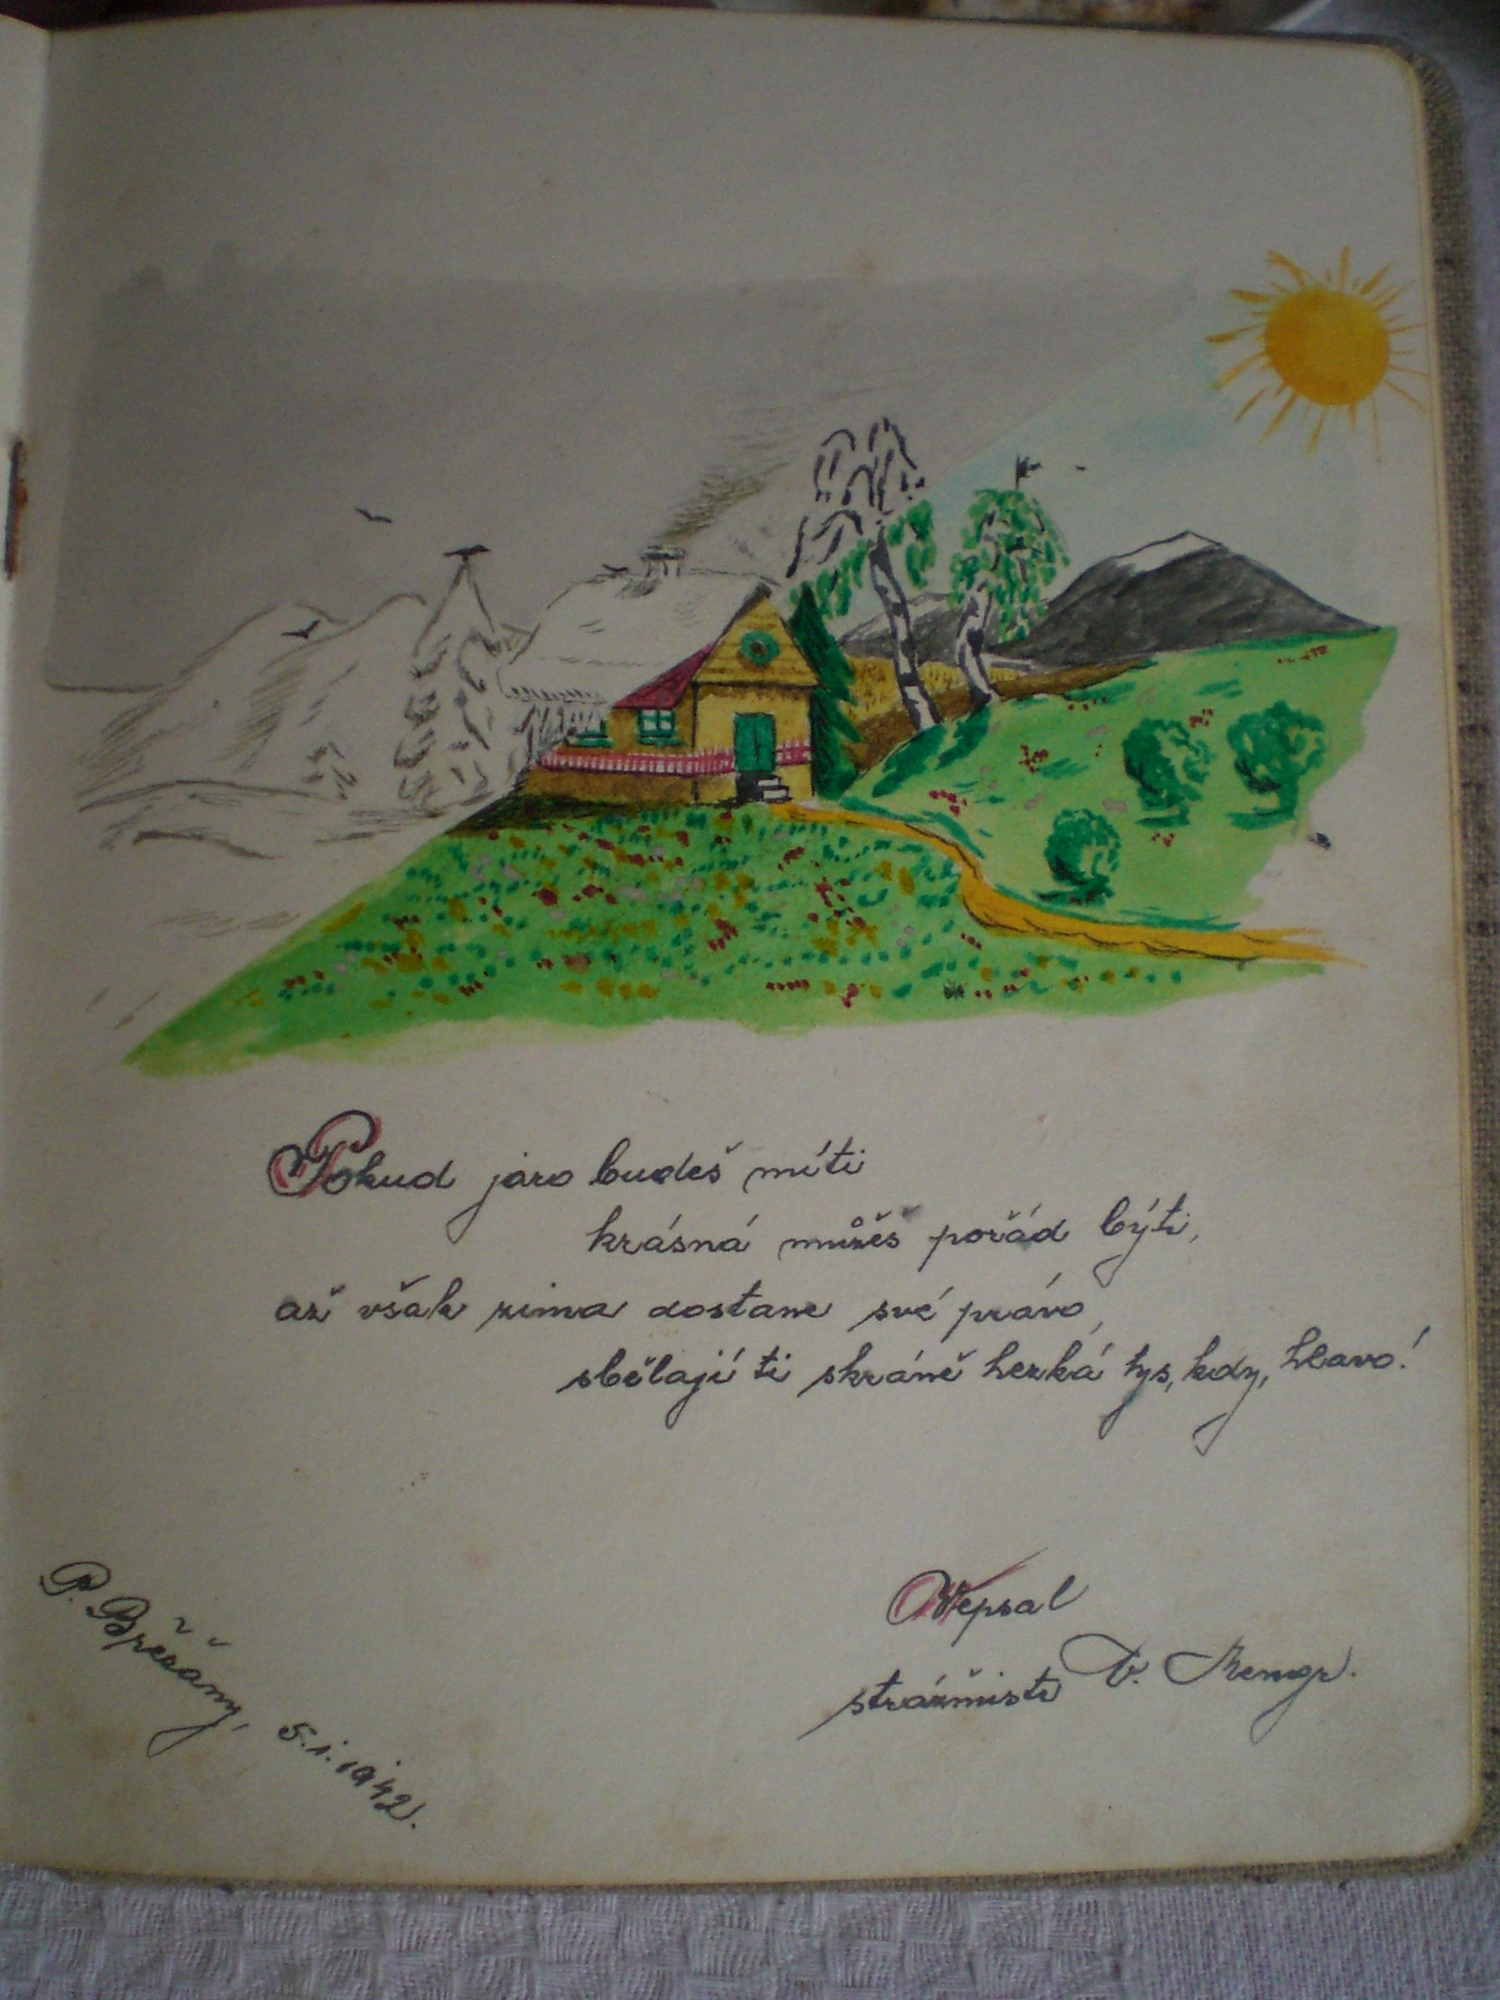 Pokud jaro budeš míti
krásná můžeš pořád býti,
až však zima dostane své právo,
sbělají ti skráně hezká tys, kdy, hlavo!
Vepsal
strážmistr V.
P. Břežany, 5.1.1942.